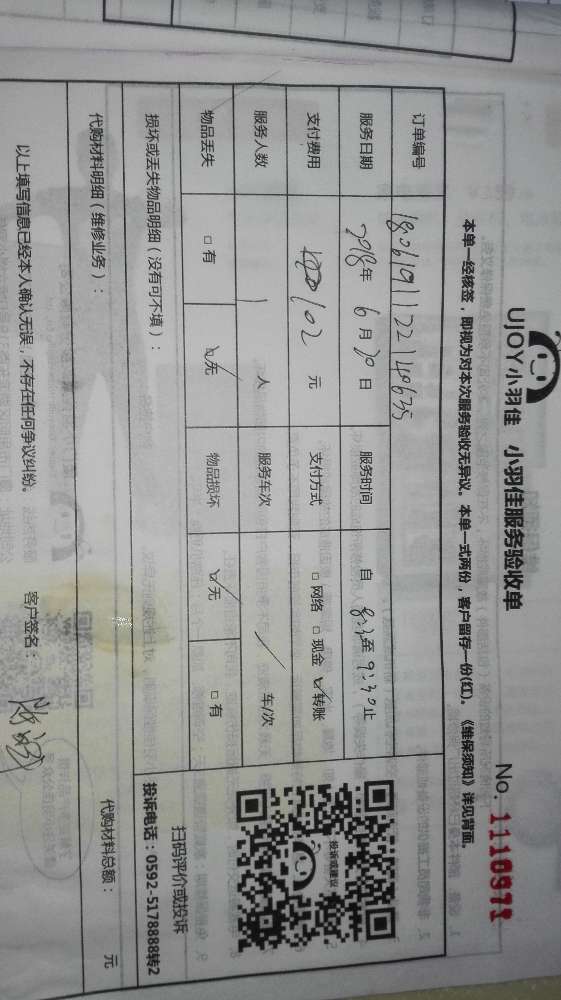 UJOY小羽佳 小羽佳服务验收单
No. 1110971
本单一经核签，即视为对本次服务验收无异议。本单一式两份，客户留存一份(红)。《维保须知》详见背面。
订单编号
服务日期 2018年 6月20日 服务时间 自 8:30至 9:30止
支付费用 102 元 支付方式 □网络 □现金 ☑转账
服务人数 1 人 服务车次 / 车/次
物品丢失 □有 ☑无 物品损坏 ☑无 □有
投诉或建议
扫码评价或投诉
投诉电话：0592-5178888转2
损坏或丢失物品明细（没有可不填）：
代购材料明细（维修业务）： 代购材料总额： 元
以上填写信息已经本人确认无误，不存在任何争议纠纷。 客户签名：